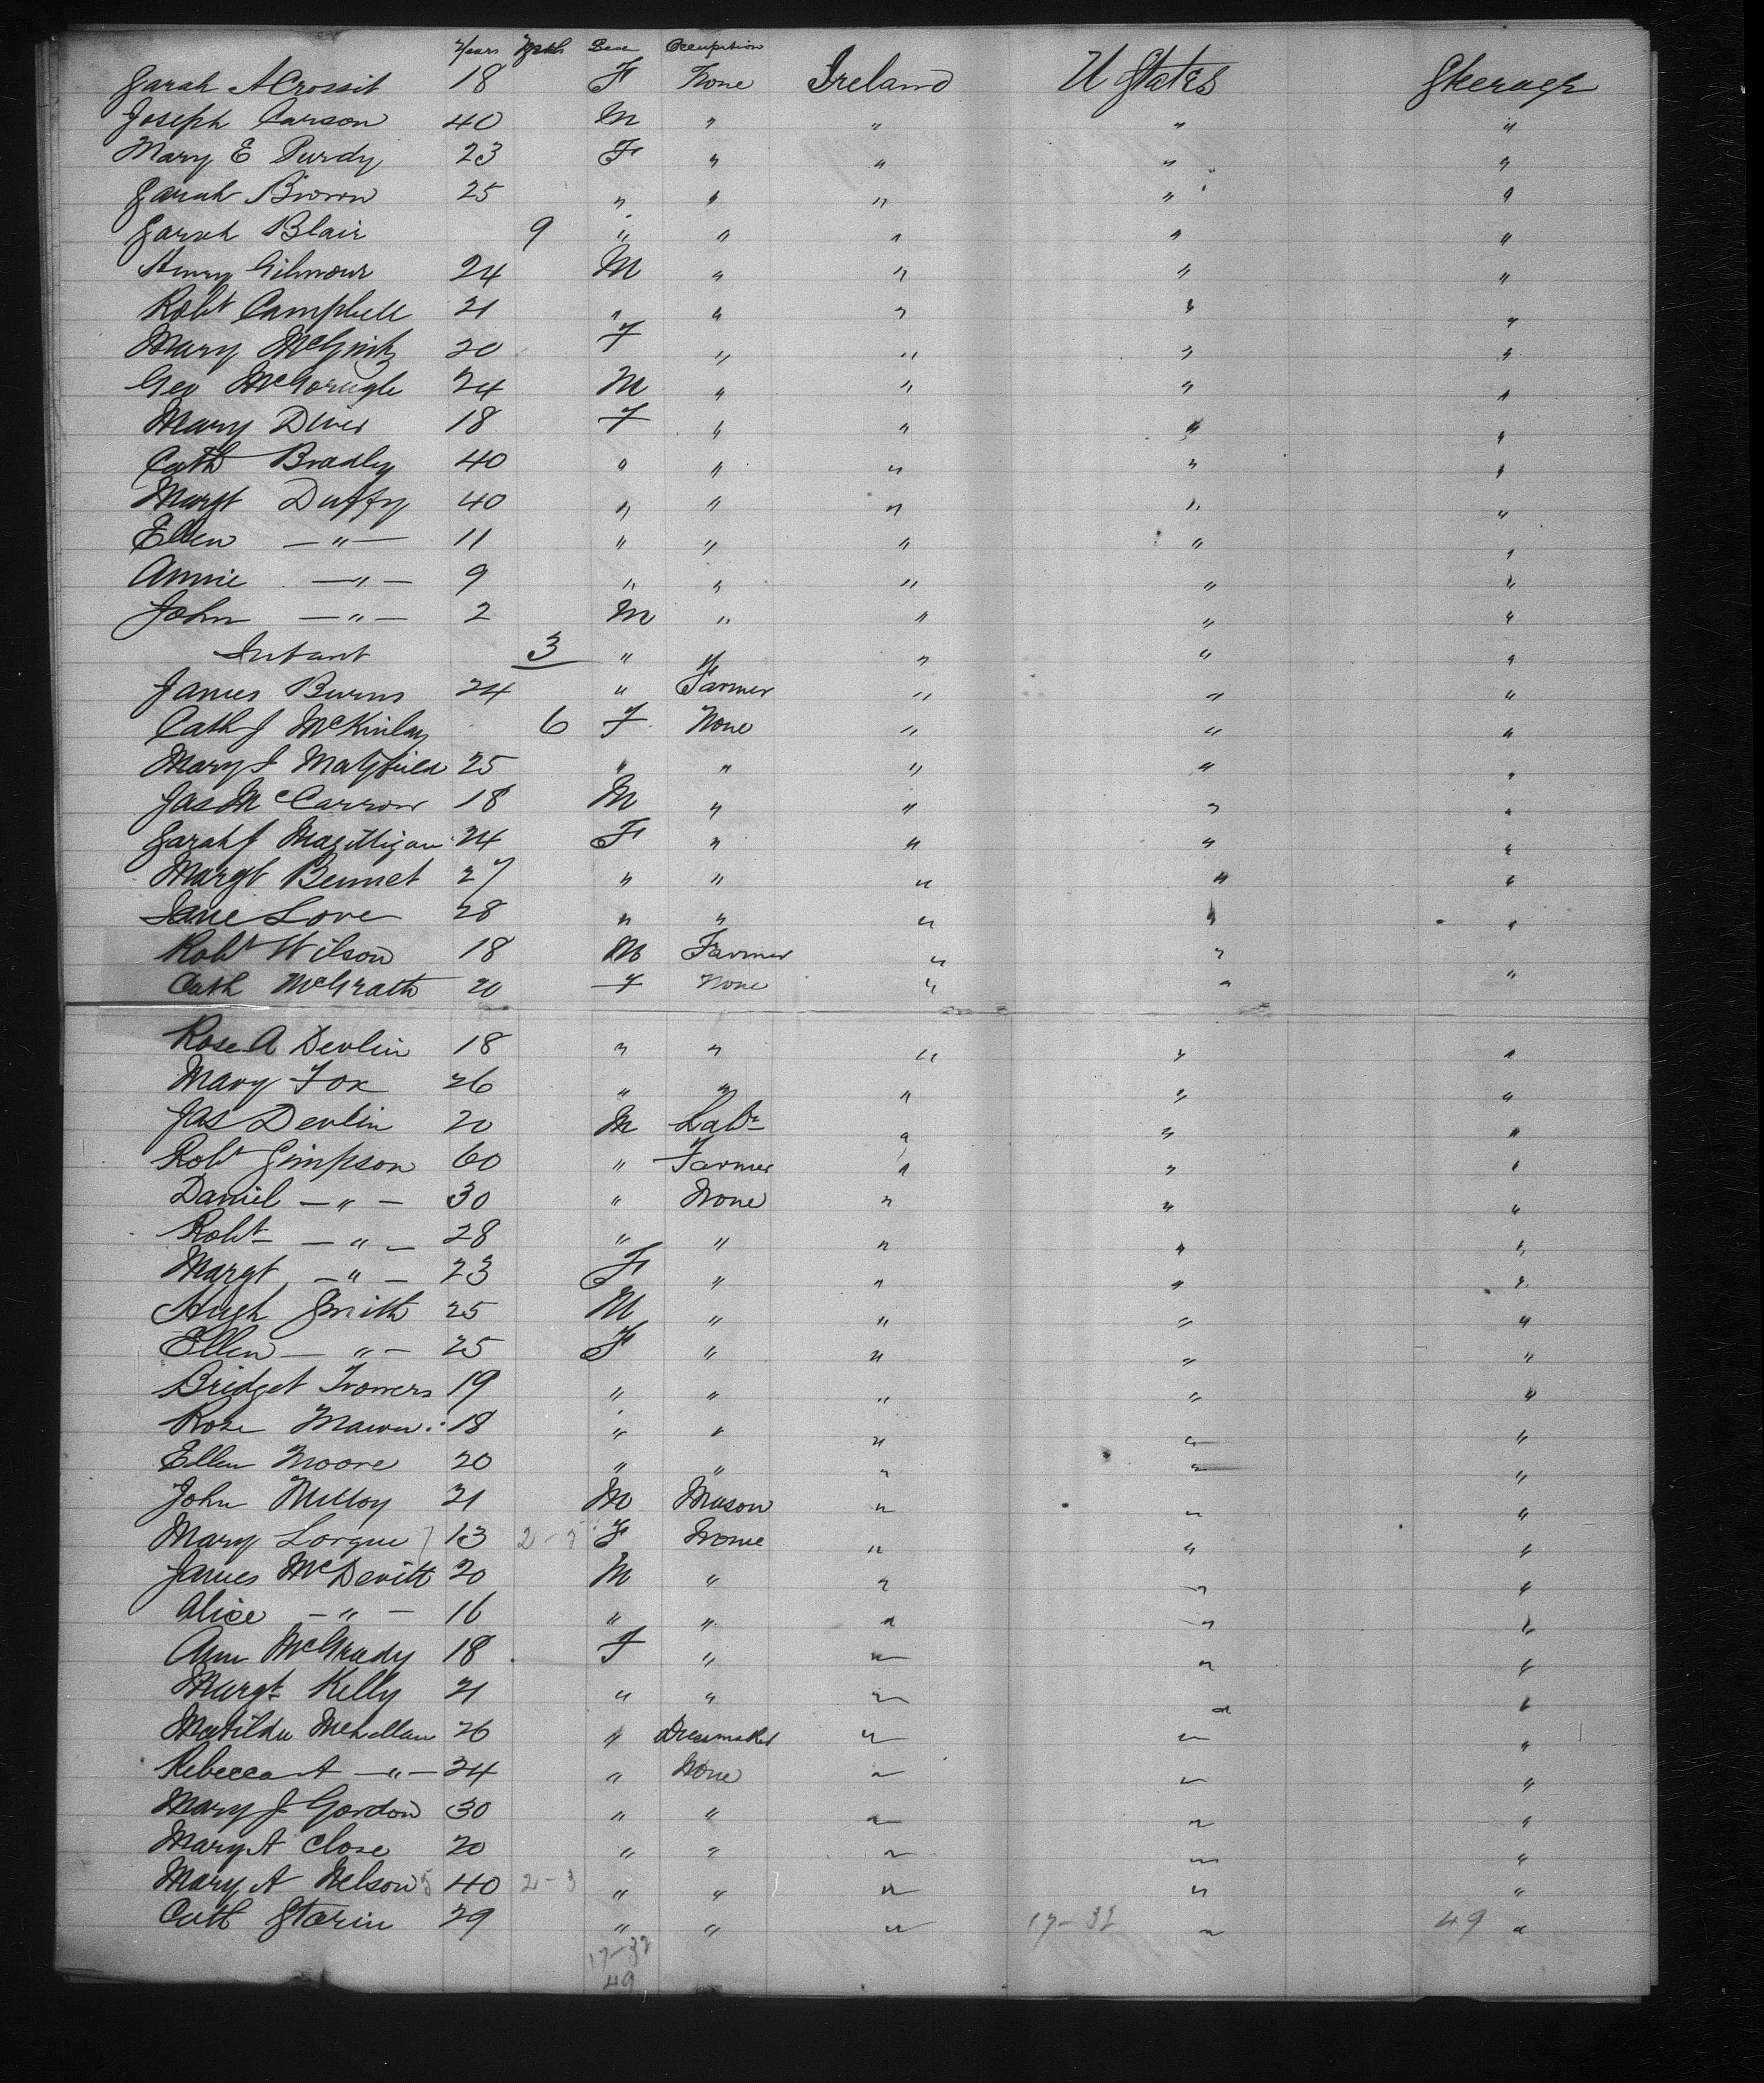 Years Mths Sex Occupation
Sarah A Crossit 18 F None Ireland U States Steerage
Joseph Carson 40 M " " " "
Mary E Purdy 23 F " " " "
Sarah Brown 25 " " " " "
Sarah Blair 9 " " " " "
Henry Gilmour 24 M " " " "
Robt Campbell 21 " " " " "
Mary 20 F " " " "
Geo McGonigle 24 M " " " "
Mary Diver 18 F " " " "
Cath Bradley 40 " " " " "
Margt Duffy 40 " " " " "
Ellen — " — 11 " " " " "
Annie — " — 9 " " " " "
John — " — 2 M " " " "
Infant 3 " " " " "
James Burns 24 " Farmer " " "
Cath J McKinlay 6 F None " " "
Mary J 25 " " " " "
Jas McCarron 18 M " " " "
Sarah J Magilligan 24 F " " " "
Margt Bennet 27 " " " " "
Jane Love 28 " " " " "
Robt Wilson 18 M Farmer " " "
Cath McGrath 20 F None " " "
Rose A Devlin 18 " " " " "
Mary Fox 26 " " " " "
Jas Devlin 20 M Labr " " "
Robt Simpson 60 " Farmer " " "
Daniel — " — 30 " None " " "
Robt — " — 28 " " " " "
Margt — " — 23 F " " " "
Hugh Smith 25 M " " " "
Ellen — " — 25 F " " " "
Bridget Travers 19 " " " " "
Rose Mawn 18 " " " " "
Ellen Moore 20 " " " " "
John Milloy 21 M Mason " " "
Mary Logue 13 2-5 F None " " "
James McDevitt 20 M " " " "
Alice — " — 16 " " " " "
Ann McGrady 18 F " " " "
Margt Kelly 21 " " " " "
Matilda McLellan 26 " Dressmaker " " "
Rebecca A — " — 24 " None " " "
Mary J Gordon 30 " " " " "
Mary A Close 20 " " " " "
Mary A Nelson 5 40 2-3 " " " " "
Cath Starin 29 " " " 17-32 " 49 "
17-32
49